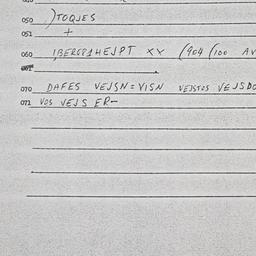 050 )TOQUES
051 +
060 IBEROPAHEJPT XX (904 (100 AV
061
070 DAFES VEJSN = VISN VEJSTOS VEJSDO
071 VOS VEJS ER-